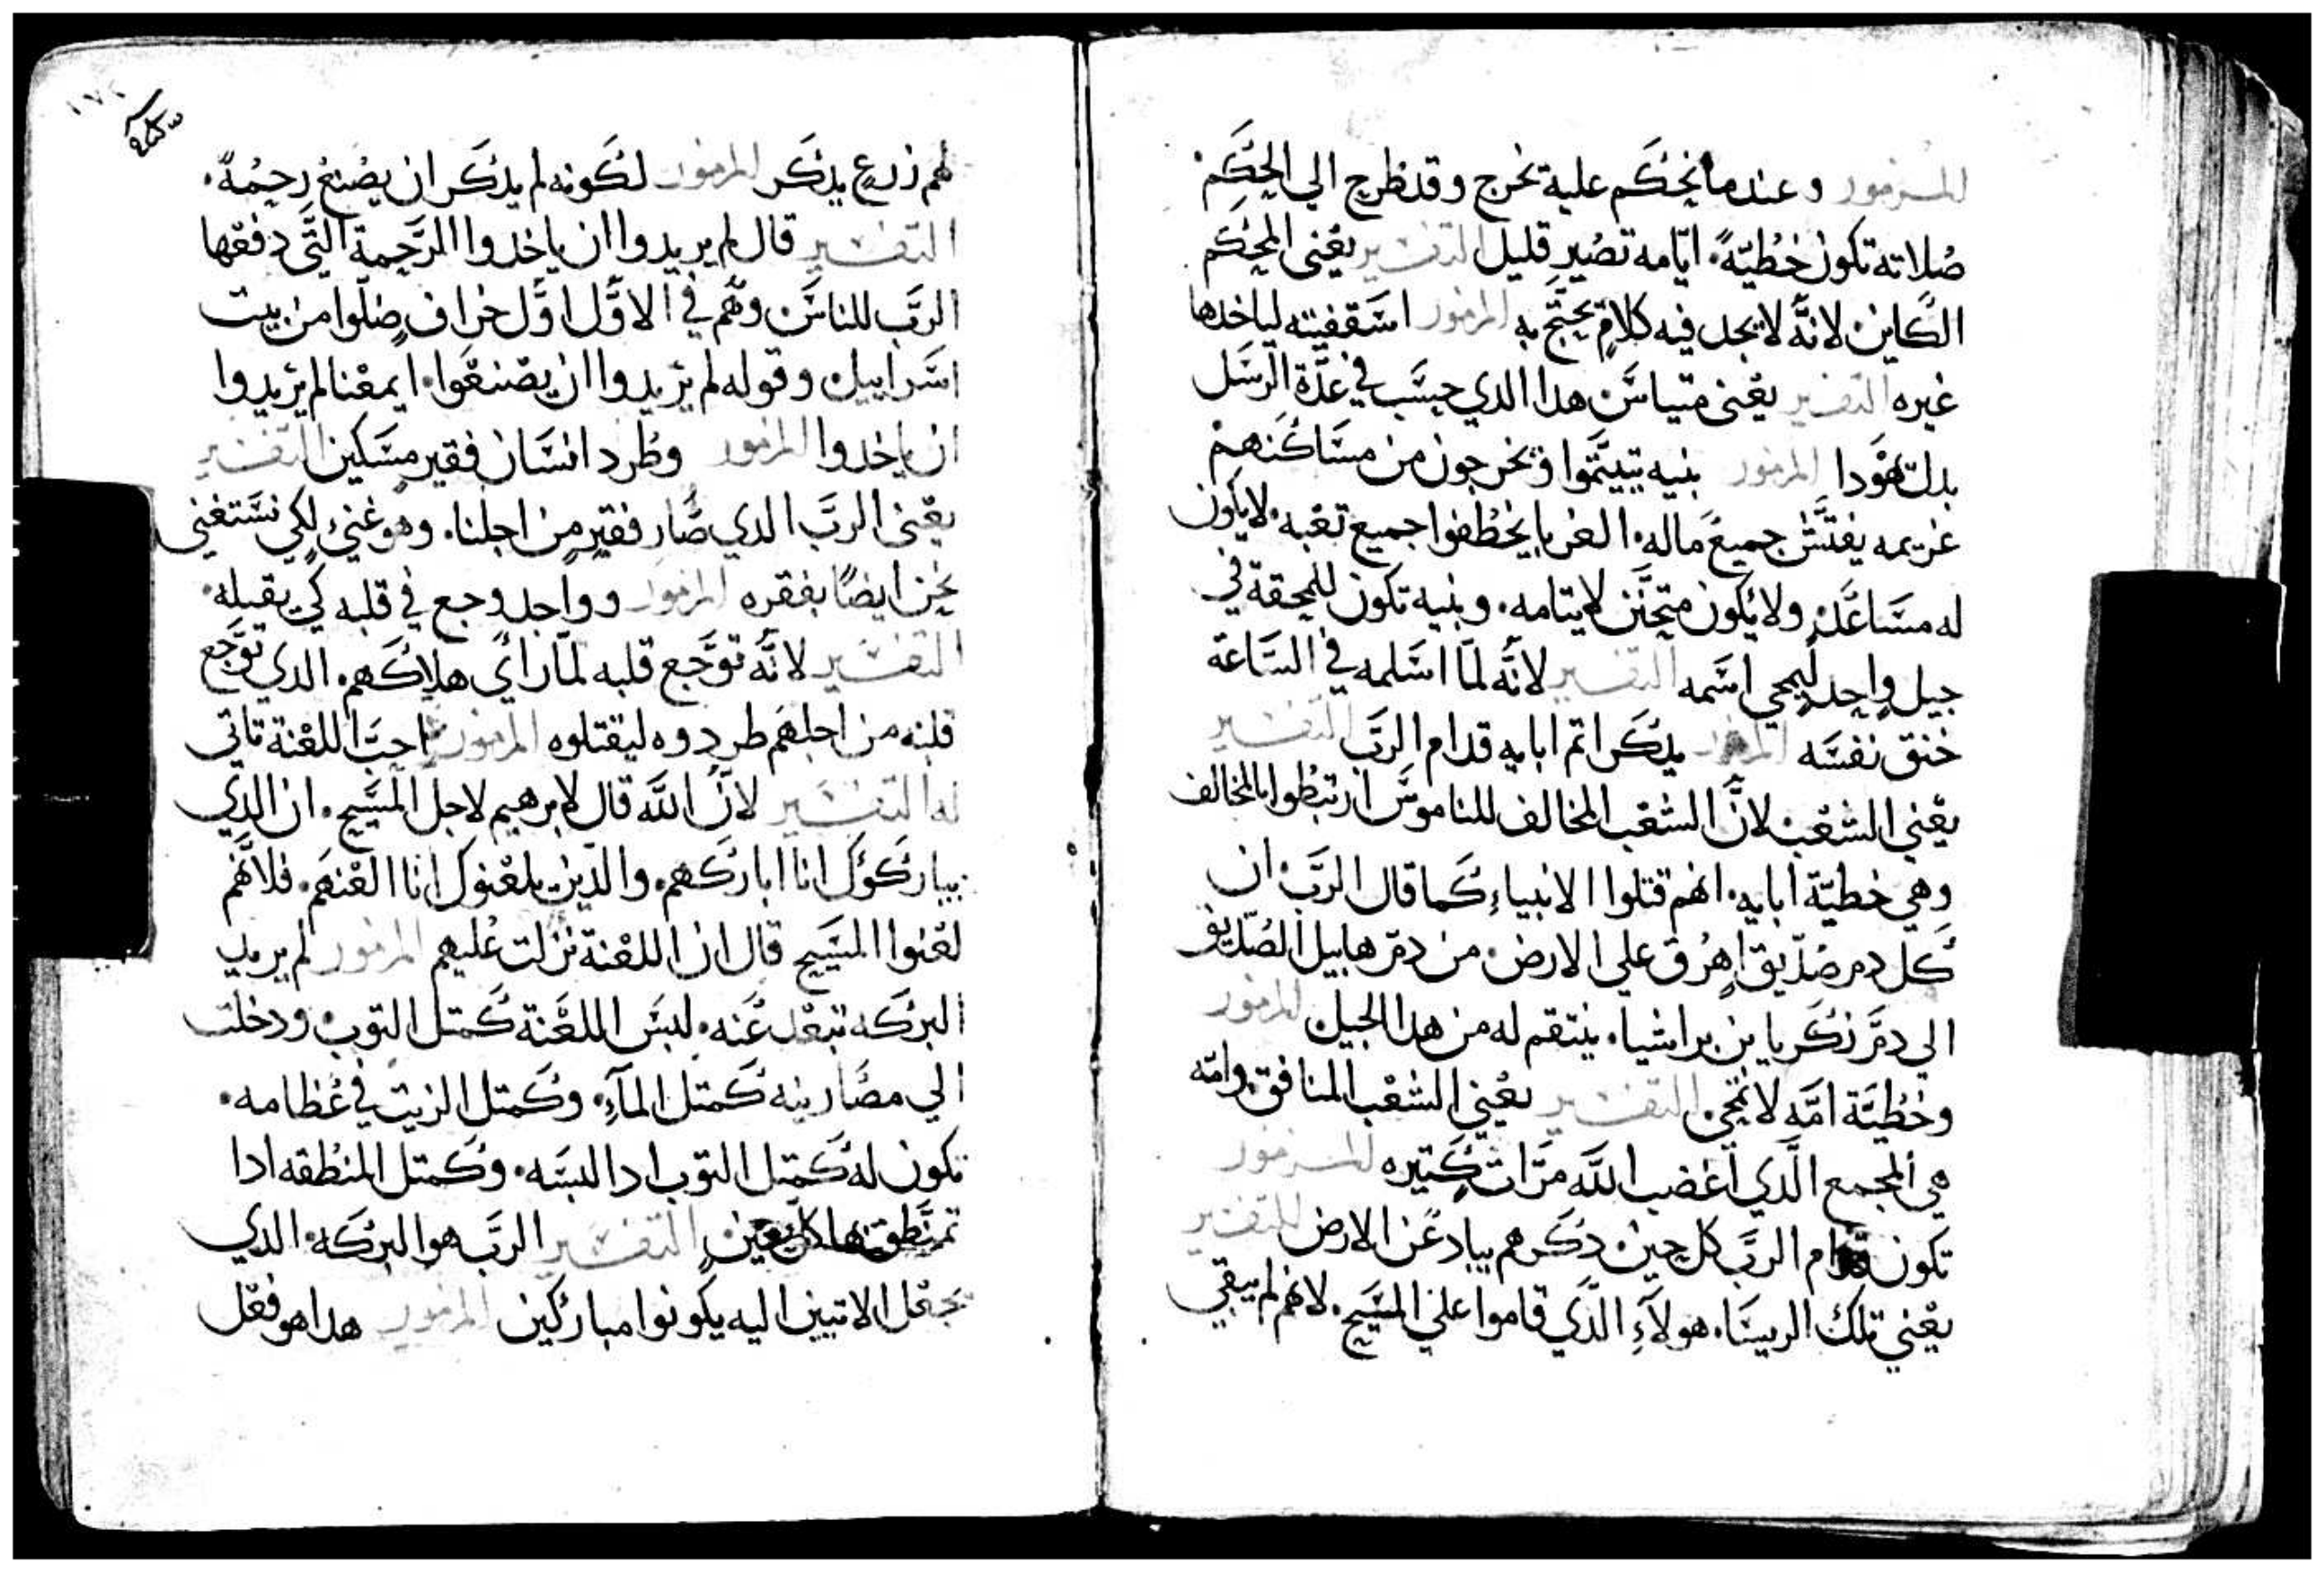 المزمور وعندما نحكم علية تخرج وقد ظرح الي الحكم
صلاته تكون خطيّةً. ايّامه تصير قليل التفسير يعني المحكم
الكاين لانّه لا يجد فيه كلامٍ يحتج به المزمور اسقفيته لياخدها
غيره التفسير يعني متياس هدا الدي حسب في عدّة الرسل
بدل يهودا المزمور بنيه تيتيتموا ويخرجون من مساكنهم
غريمه يفتش جميع ماله. الغربا يخطفوا جميع تعبه. لا يكون
له مساعد. ولا يكون متحنن لايتامه. وبنيه تكون للمحقة في
جيل واحد ليمحي اسمه التفسير لانّه لمّا اسلمه في الساعة
خنق نفسه المزمور يدكر اتم ابايه قدام الربّ التفسير
يعني الشعب لانّ الشعب المخالف للناموس ارتبطوا بالمخالف
وهي خطيّة ابايه. انهم قتلوا الانبياء كما قال الربّ ان
كل دم صدّيق اهرق علي الارض. من دم هابيل الصدّيق
الي دم زكريا بن براشيا. ينتقم له من هدا الجيل المزمور
وخطيّة امّه لا تمحي. التفسير يعني الشعب المنافق. وامّه
هي المجمع الّدي اغضب الله مرّات كتيره المزمور
تكون قدام الربّ كل حين. دكرهم يباد عن الارض التفسير
يعني تلك الريسا. هولاءِ الّدي قاموا علي المسيح. لانهم لم يبقي
لهم زرع يدكر المزمور لكونه لم يدكر ان يصنع رحمةً.
التفسير قال لم يريدوا ان ياخدوا الرّحمة التّي دفعها
الربّ للناس وهم في الاوّل اوّل خراف ضلّوا من بيت
اسراييل وقوله لم يريدوا ان يصنعوا. ايمعنا لم يريدوا
ان ياخدوا المزمور وطرد انسان فقير مسكين التفسير
يعني الربّ الدي صار فقيرٍ من اجلنا. وهو غني لكي نستغني
نحن ايضًا بفقره المزمور وواجد وجع في قلبه كي يقبله.
التفسير لانّه توجّع قلبه لمّا راي هلاكهم. الدي توجّع
قلبه من اجلهم طردوه ليقتلوه المزمور احبّ اللعنة تاتي
له التفسير لانّ الله قال لابرهيم لاجل المسيح. ان الدي
يباركوك انا اباركهم. والّدين يلعنوك انا العنهم. فلانّهم
لعنوا المسيح قال ان اللعنة نزلت عليهم المزمور لم يريد
البركه تبعد عنه. لبس اللعنة كمتل التوب. ودخلت
الي مصارينه كمتل المآءِ. وكمتل الزيت في عظامه.
تكون له كمتل التوب ادا البسه. وكمتل المنطقه ادا
تمنطق بها كل حين التفسير الربّ هو البركه. الدي
يجعل الاتيين اليه يكونوا مباركين المزمور هدا هو فعل